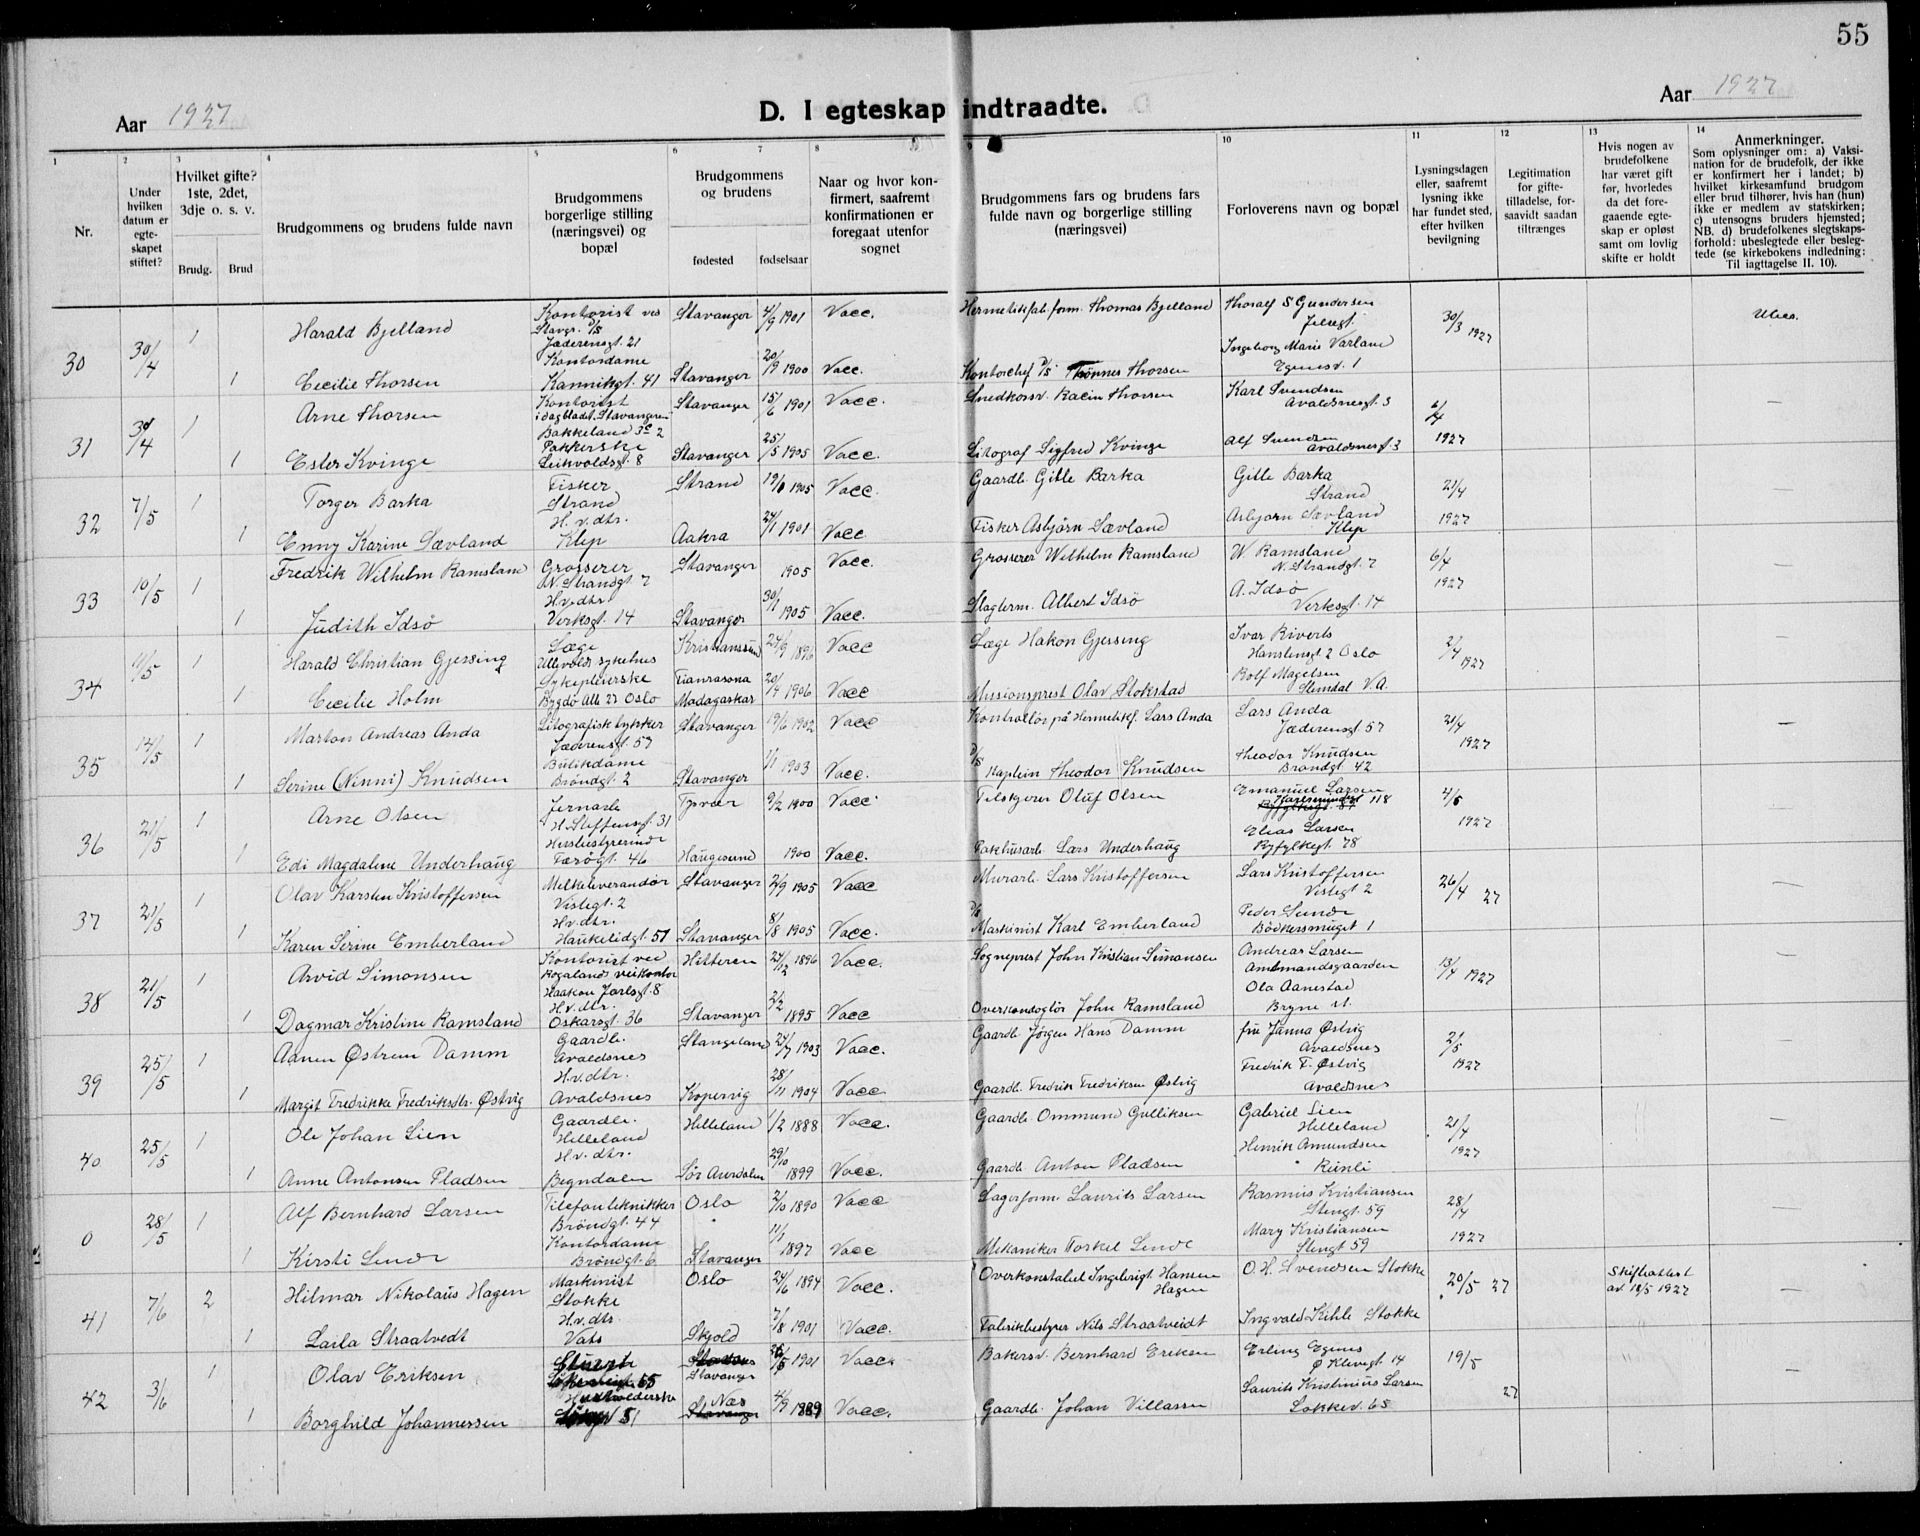 55
Aar 1927
D. I egteskap indtraadte.
Aar 1927
1 2 3 4 5 6 7 8 9 10 11 12 13 14
Nr.
Under hvilken datum er egte-skapet stiftet?
Hvilket gifte? 1ste, 2det, 3dje o. s. v.
Brudg. Brud
Brudgommens og brudens fulde navn
Brudgommens borgerlige stilling (næringsvei) og bopæl
Brudgommens og brudens
fødested fødselsaar
Naar og hvor kon-firmert, saafremt konfirmationen er foregaat utenfor sognet
Brudgommens fars og brudens fars fulde navn og borgerlige stilling (næringsvei)
Forloverens navn og bopæl
Lysningsdagen eller, saafremt lysning ikke har fundet sted, efter hvilken bevilgning
Legitimation for gifte-tilladelse, for-saavidt saadan tiltrænges
Hvis nogen av brudefolkene har været gift før, hvorledes da det fore-gaaende egte-skap er opløst samt om lovlig skifte er holdt
Anmerkninger.
Som oplysninger om: a) Vaksi-nation for de brudefolk, der ikke er konfirmert her i landet; b) hvilket kirkesamfund brudgom eller brud tilhører, hvis han (hun) ikke er medlem av statskirken; c) utensogns bruders hjemsted; NB. d) brudefolkenes slegtskaps-forhold: ubeslegtede eller besleg-tede (se kirkebokens indledning: Til iagttagelse II. 10).
30 30/4 1 Harald Bjelland Kontorist ved Stavgs. D/S Jæderensgt. 21 Stavanger 4/9 1901 Vacc. Hermetikfab.form. Thomas Bjelland Thoralf S Gundersen 30/3 1927 Ubes.
1 Cecilie Thorsen Kontordame Kannikgt. 41 Stavanger 20/9 1900 Vacc. Kontorchef D/S Thönnes Thorsen Ingeborg Marie Varland Egenesv. 1
31 30/4 1 Arne Thorsen Kontorist i dagbladt. Stavangeren Bakkeland 3c 2 Stavanger 15/6 1901 Vacc. Snedkersv. Karin Thorsen Karl Svendsen Avaldsnesgt. 3 1927 —
1 Ester Kvinge Pakkerske Leikvoldsgt. 8 Stavanger 25/5 1905 Vacc. Litograf Sigfred Kvinge Alf Svendsen Avaldsnesgt. 3
32 7/5 1 Torger Barka Fisker Strand Strand 19/6 1905 Vacc. Gaardb. Gitle Barka Gitle Barka Strand 21/4 1927 —
1 Enny Karine Sævland H.v.dtr. Klep Aakra 24/1 1901 Vacc. Fisker Asbjørn Sævland Asbjørn Sævland Klep
33 10/5 1 Fredrik Wilhelm Ramsland Grosserer N. Strandgt. 7 Stavanger 1905 Vacc. Grosserer Wilhelm Ramsland W. Ramsland N. Strandgt. 7 6/4 1927 —
1 Judith Idsö H.v.dtr. Verksgt. 14 Stavanger 30/1 1905 Vacc. Slagterm. Albert Idsö A. Idsö Verksgt. 14
34 11/5 1 Harald Christian Gjessing Læge Ullevolds sykehus Kristianssund 24/9 1896 Vacc Læge Hakon Gjessing Ivar Riverts Oslo 2/4 1927
1 Cecilie Holm Sykepleierske Bygdö Alle 27 Oslo Madagaskar 20/4 1906 Vacc Missionsprest Olav Stokstad Rolf Magelsen Slemdal V.A. —
35 14/5 1 Marton Andreas Anda Litografisk trykker Jæderensgt. 57 Stavanger 19/6 1902 Vacc Kontrollör på Hermetikf. Lars Anda Lars Anda Jæderensgt 57 21/4 1927 —
1 Serine (Nenni) Knudsen Butikdame Bröndgt. 2 Stavanger 1/1 1903 Vacc. D/S Kaptein Theodor Knudsen Theodor Knudsen Bröndgt. 42
36 21/5 1 Arne Olsen Jernarb. H. Steffensgt. 31 Tysvær 9/2 1900 Vacc. Tilskjærer Oluf Olsen Emanuel Larsen 118 4/5 1927 —
1 Edi Magdalene Underhaug Husbestyrerinde Færögt. 46 Haugesund 1900 Vacc. Pakhusarb. Lars Underhaug Elias Larsen Ryfylkegt 78
37 21/5 1 Olav Karsten Kristoffersen Melkeleverandör Vistegt. 2 Stavanger 2/9 1905 Vacc Murarb. Lars Kristoffersen Lars Kristoffersen Vistegt 2 26/4 27 —
1 Karen Serine Emberland H.v.dtr. Haukelidgt. 57 Stavanger 8/8 1905 Vacc. D/S Maskinist Karl Emberland Peder Sunde Bödkersmuget 1
38 21/5 1 Arvid Simonsen Kontorist ved Rogalands veikontor Haakon Jarlsgt. 8 Hitteren 27/12 1896 Vacc. Sogneprest John Kristian Simonsen Andreas Larsen Amtmandsgaarden 13/4 1927 —
1 Dagmar Kristine Ramsland H.v.dtr. Oskarsgt. 36 Stavanger 2/2 1895 Vacc John Ramsland Ola Aanestad Bryne st.
39 25/5 1 Aanen Østrem Damm Gaardb. Avaldsnes Stangeland 24/7 1903 Vacc. Gaardb Jørgen Hans Damm fru Janna Østvig Avaldsnes 2/5 1927 —
1 Margit Fredrikke Fredriksdtr. Østvig H.v.dtr. Avaldsnes Kopervig 28/11 1904 Vacc Gaardb. Fredrik Fredriksen Østvig Fredrik F. Østvig Avaldsnes
40 25/5 1 Ole Johan Lien Gaardb. Helleland Helleland 1/2 1888 Vacc. Gaardb Ommund Gulliksen Gabriel Lien Helleland 21/4 1927 —
1 Anne Antonsen Pladsen H.v.dtr. Begndalen Sör Aurdalen 29/10 1899 Vacc. Gaardb Anton Pladsen Henrik Amundsen
0 28/5 1 Alf Bernhard Larsen Telefontekniker Bröndgt. 44 Oslo 2/10 1890 Vacc Lagerform. Laurits Larsen Rasmus Kristiansen Stengt. 59 28/4 1927 —
1 Kirsti Lende Kontordame Bröndgt. 6 Stavanger 11/1 1897 Vacc Mekaniker Torkel Lende Mary Kristiansen Stengt 59
41 7/6 2 Hilmar Nikolaus Hagen Maskinist Stokke Oslo 24/6 1894 Vacc. Overkonstabel Ingebrigt Hansen Hagen O.H. Svendsen Stokke 20/5 27 Skifteattest av 18/5 1927 —
1 Laila Straatvedt H.v.dtr. Vats Skjold 7/8 1901 Vacc. Fabrikbestyrer Nils Straatveidt Ingvald Kihle Stokke
42 3/6 1 Olav Eriksen 55 Stavanger 1901 Vacc. Bakersv. Bernhard Eriksen Erling Egenes Ø Klevegt 14 19/5 27 —
1 Borghild Johannessen Husholderske 51 Næs Stavanger 4/9 1889 Vacc. Gaardb. Johan Villassen Laurits Kristinius Larsen Lökkev. 65